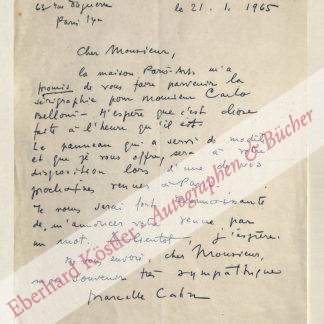 le 21. 1. 1965
Paris 14e
Cher Monsieur,
la maison Paris-Arts m'a
promis de vous faire parvenir la
sérigraphie pour Monsieur Carlo
Belloni - J'espère que c'est chose
faite à l'heure qu'il est
Le panneau qui a servi de modèle
et que je vous offre, sera à votre
disposition lors d'une de vos
prochaines venues à Paris
Je vous serai fort reconnaissante
de m'annoncer votre venue par
un mot. A bientôt, j'espère.
Je vous envoie, cher Monsieur,
mon souvenir très sympathique
Marcelle Cahn
Eberhard Köstler Autographen & Bücher